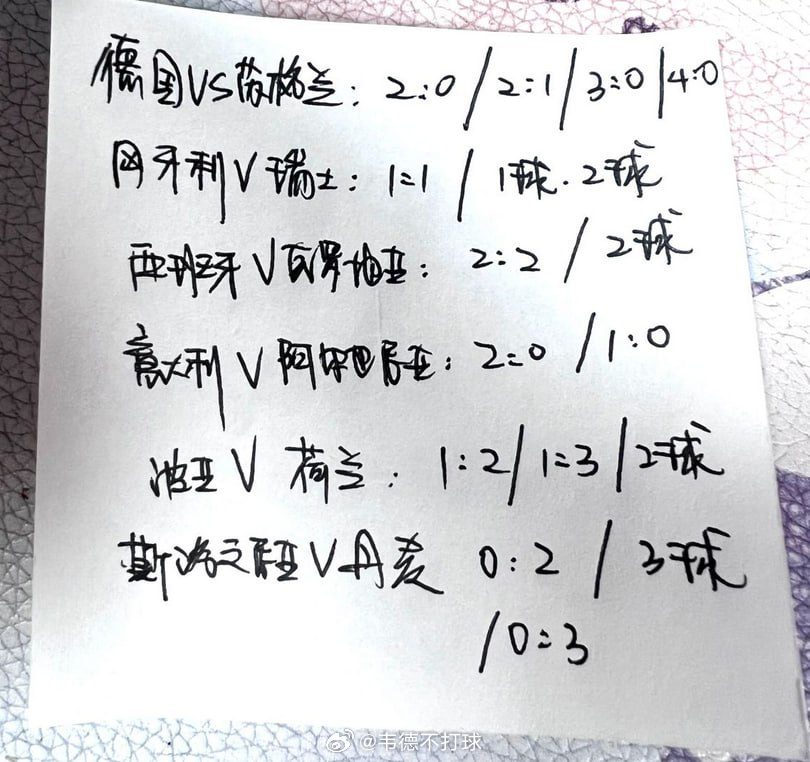 德国VS苏格兰：2:0/2:1/3:0/4:0
匈牙利V瑞士：1:1/1球.2球
西班牙V克罗地亚：2:2/2球
意大利V阿尔巴尼亚：2:0/1:0
波兰V荷兰：1:2/1:3/2球
斯洛文尼亚V丹麦 0:2/3球
/0:3
@韦德不打球